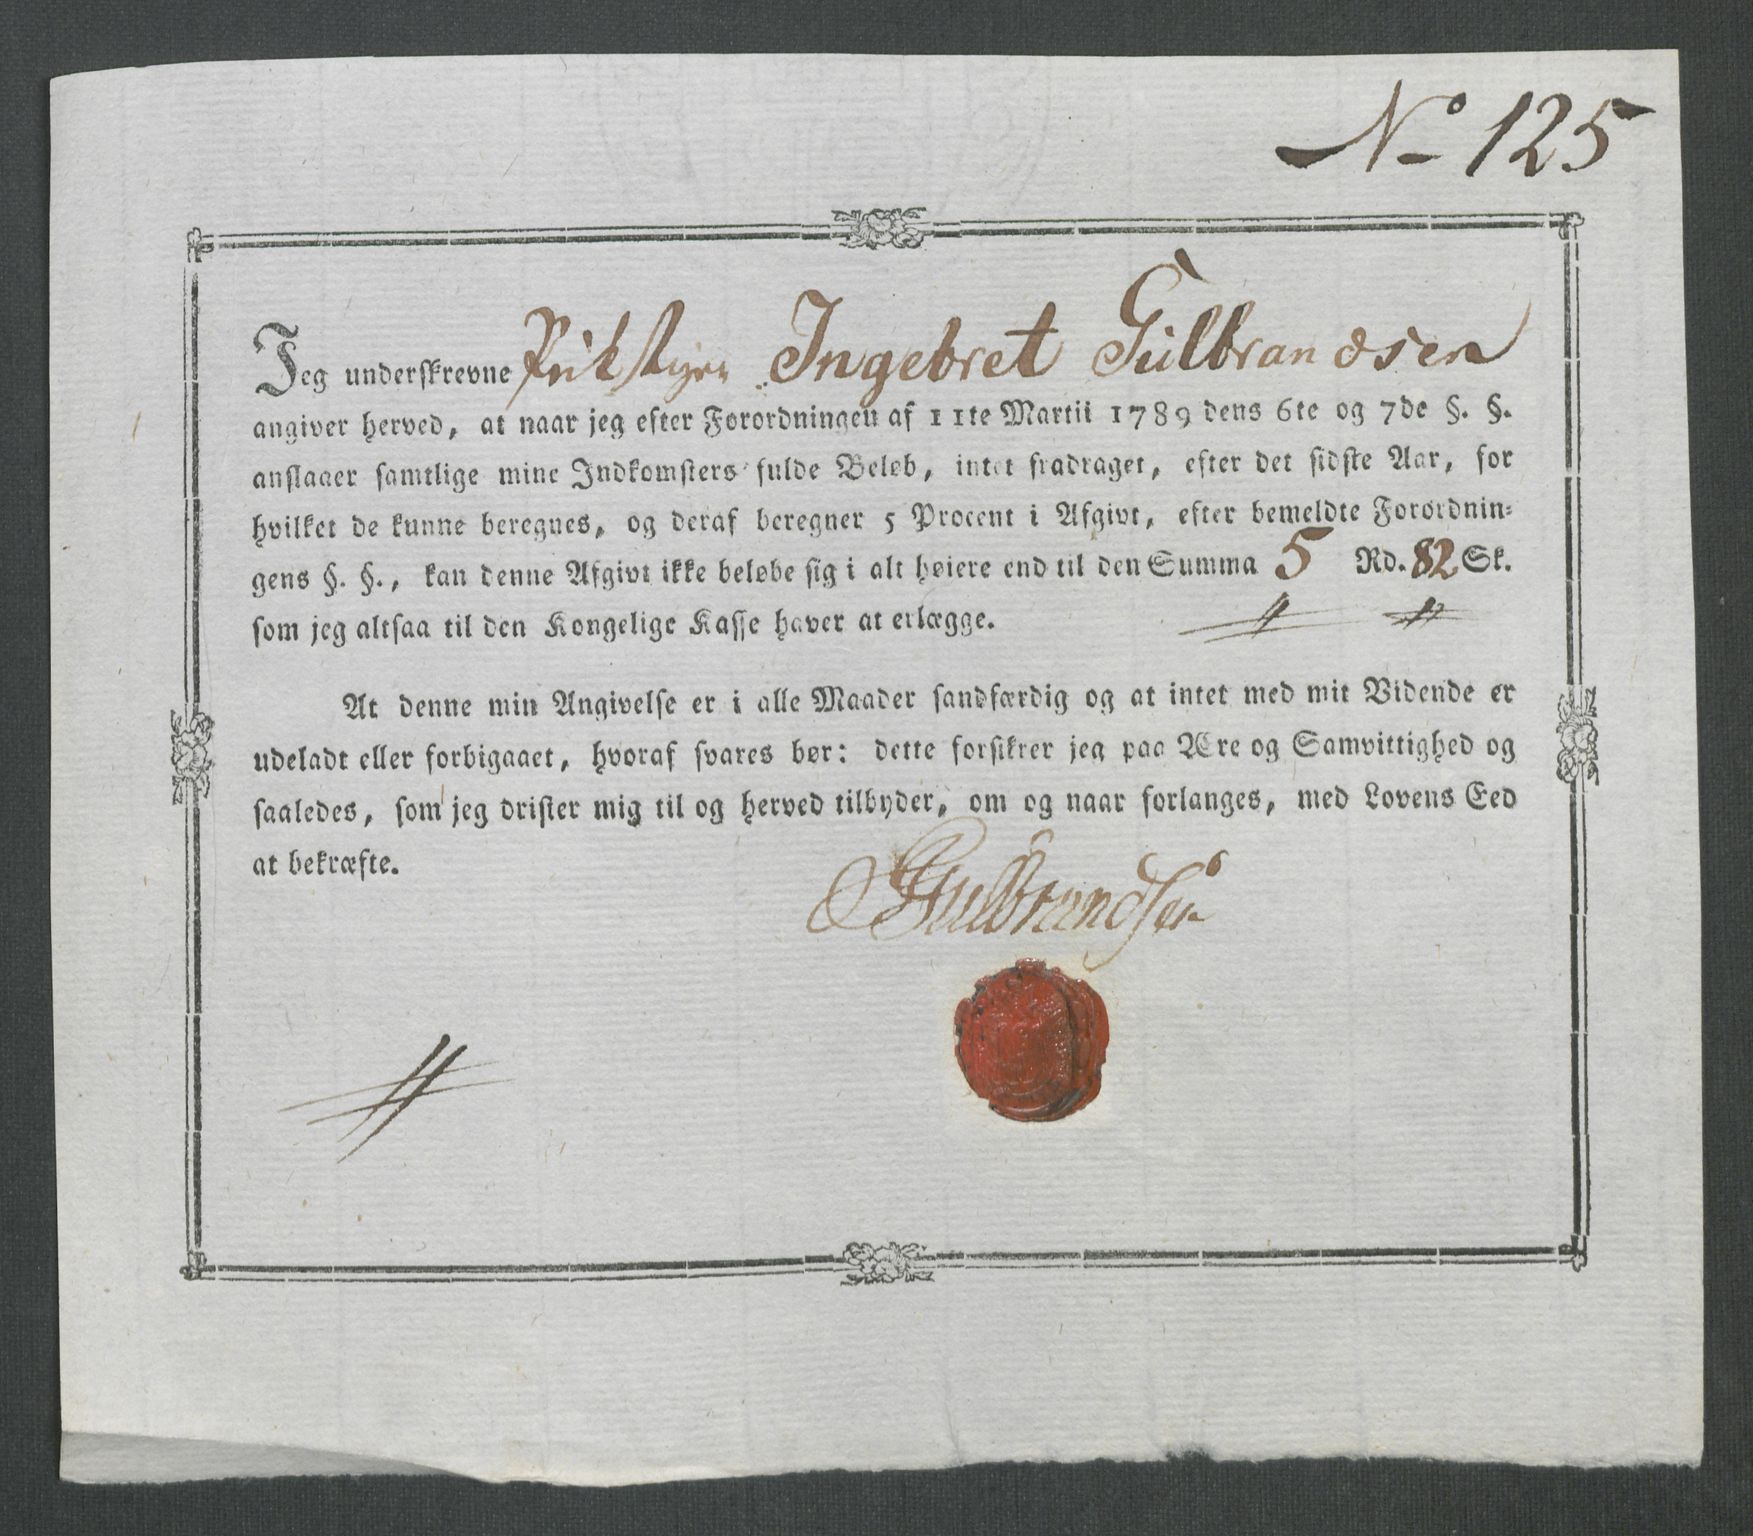 No 125
Jeg underskrevne Ingebret Gulbrandsen
angiver herved, at naar jeg efter Forordningen af 11te Martii 1789 dens 6te og 7de §. §.
anslaaer samtlige mine Indkomsters fulde Beløb, intet fradraget, efter det sidste Aar, for
hvilket de kunne beregnes, og deraf beregner 5 Procent i Afgivt, efter bemeldte Forordnin=
gens §. §., kan denne Afgivt ikke beløbe sig i alt høiere end til den Summa 5 Rd. 82 Sk.
som jeg altsaa til den Kongelige Kasse haver at erlægge.
At denne min Angivelse er i alle Maader sandfærdig og at intet med mit Vidende er
udeladt eller forbigaaet, hvoraf svares bør: dette forsikrer jeg paa Ære og Samvittighed og
saaledes, som jeg drister mig til og herved tilbyder, om og naar forlanges, med Lovens Eed
at bekræfte.
Gulbrandsen